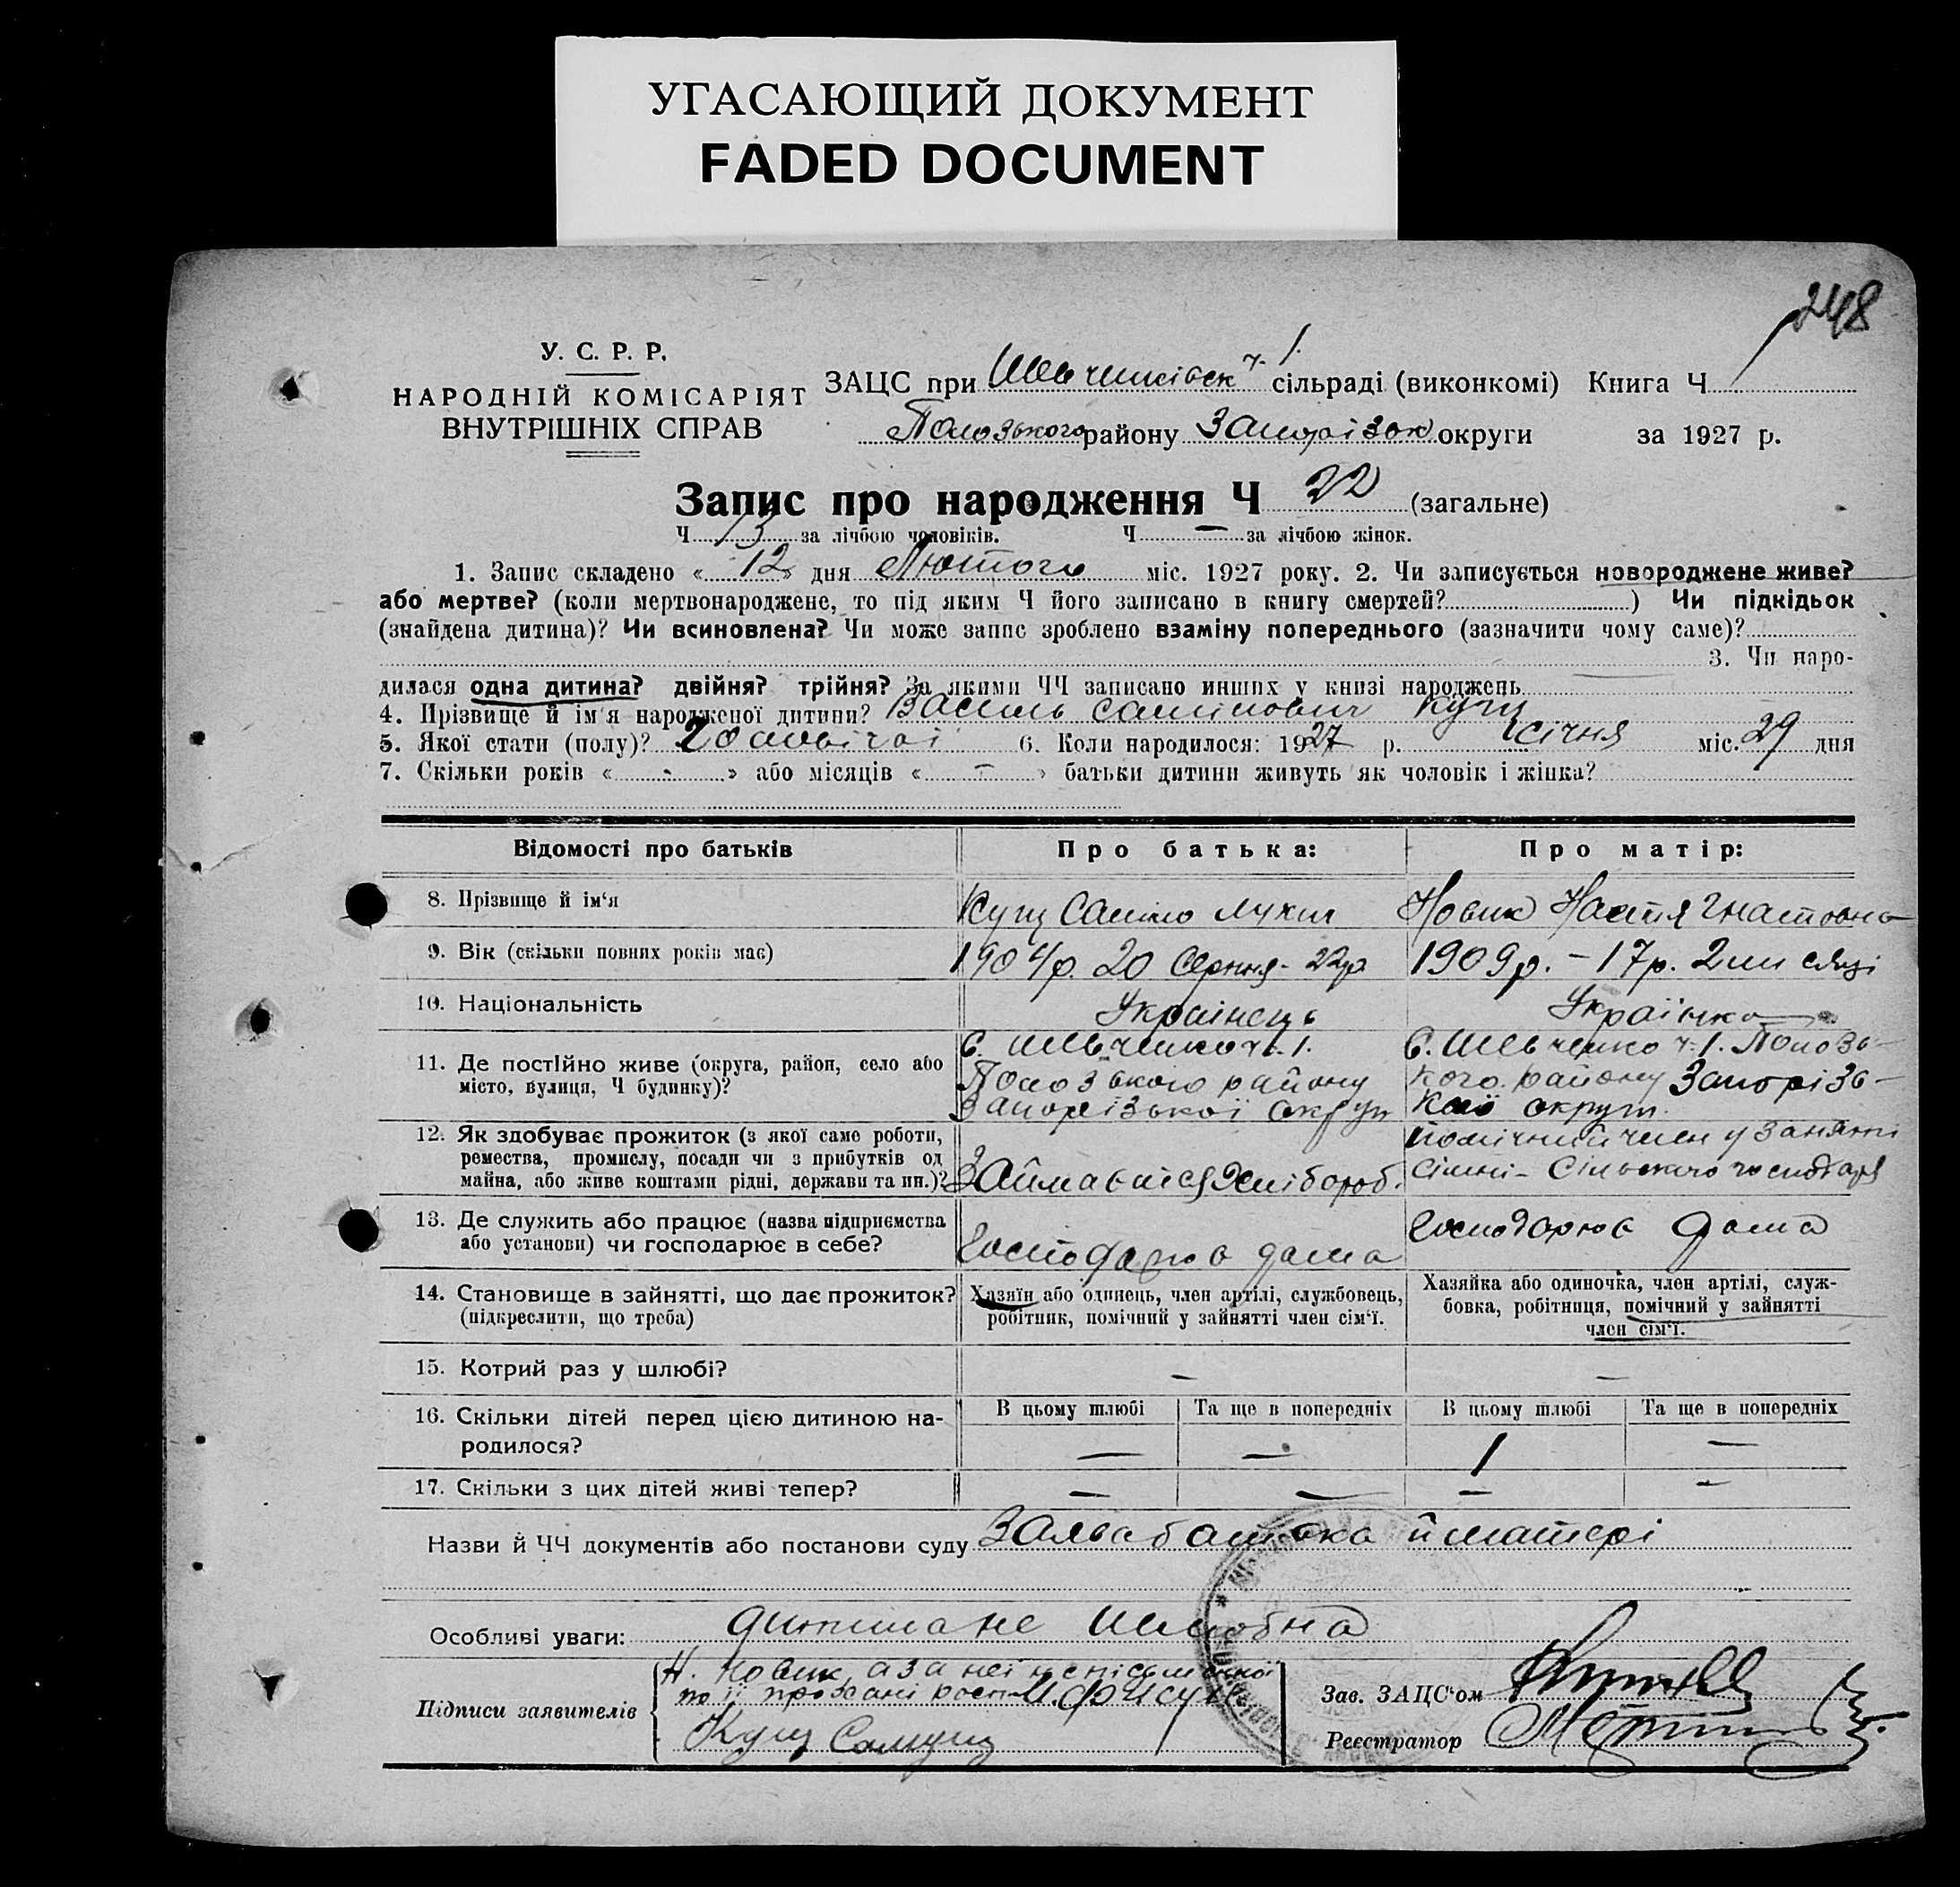 УГАСАЮЩИЙ ДОКУМЕНТ
FADED DOCUMENT
248
У. С. Р. Р.
НАРОДНІЙ КОМІСАРІЯТ
ВНУТРІШНІХ СПРАВ
ЗАЦС при Шевченківськ ч. 1. сільраді (виконкомі) Книга Ч
Пологського району Запорізьк округи за 1927 р.
Запис про народження Ч 22 (загальне)
Ч 13 за лічбою чоловіків. Ч — за лічбою жінок.
1. Запис складено « 12 » дня Лютого міс. 1927 року. 2. Чи записується новороджене живе?
або мертве? (коли мертвонароджене, то під яким Ч його записано в книгу смертей? ) Чи підкідьок
(знайдена дитина)? Чи всиновлена? Чи може запис зроблено взаміну попереднього (зазначити чому саме)?
3. Чи наро-
дилася одна дитина? двійня? трійня? За якими ЧЧ записано инших у книзі народжень
4. Прізвище й ім'я народженої дитини? Василь Кущ
5. Якої стати (полу)? 6. Коли народилося: 1927 р. січня міс. 29 дня
7. Скільки років « - » або місяців « — » батьки дитини живуть як чоловік і жінка?
Відомості про батьків Про батька: Про матір:
8. Прізвище й ім'я Кущ Новик Настя Гнатовна
9. Вік (скільки повних років має) 1904р. 20 Серпня - 22р 1909р. – 17р. 2 місяці
10. Національність Українець Українка
11. Де постійно живе (округа, район, село або
місто, вулиця, Ч будинку)?
С. Шевченко ч. 1.
району
Запорізької округи
С. Шевченко ч. 1.
кого району Запорізь-
кої округи.
12. Як здобуває прожиток (з якої саме роботи,
ремества, промислу, посади чи з прибутків од
майна, або живе коштами рідні, держави та ин.)?
Хлібороб.
помічний член у занятті
сімї - Сільського господаря
13. Де служить або працює (назва підприємства
або установи) чи господарює в себе?
Господарює дома
Господарює дома
14. Становище в зайнятті, що дає прожиток?
(підкреслити, що треба)
Хазяїн або одинець, член артілі, службовець,
робітник, помічний у зайнятті член сім'ї.
Хазяйка або одиночка, член артілі, служ-
бовка, робітниця, помічний у зайнятті
член сім'ї.
15. Котрий раз у шлюбі? — —
16. Скільки дітей перед цією дитиною на-
родилося?
В цьому шлюбі Та ще в попередніх В цьому шлюбі Та ще в попередніх
— — 1 —
17. Скільки з цих дітей живі тепер? — — — —
Назви й ЧЧ документів або постанови суду Заява батька й матері
Особливі уваги: дитина не шлюбна
Підписи заявителів
Н. Новик, а за неї неписьменної
по її
Кущ
Зав. ЗАЦС'ом
Реєстратор